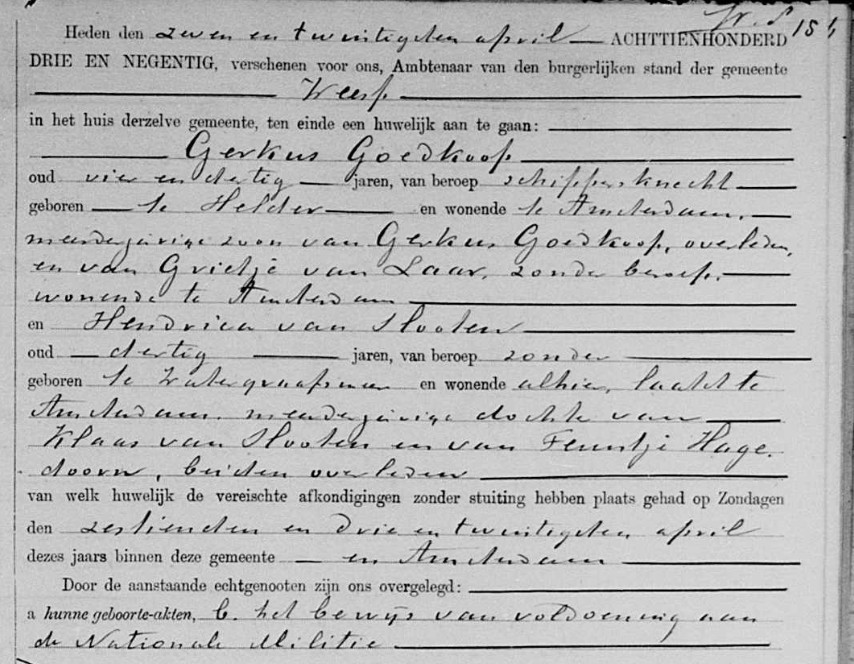 Heden den zeven en twintigsten april ACHTTIENHONDERD
DRIE EN NEGENTIG, verschenen voor ons, Ambtenaar van den burgerlijken stand der gemeente
Weesp
in het huis derzelve gemeente, ten einde een huwelijk aan te gaan:
Gerkus Goedkoop
oud vier en dertig jaren, van beroep schippersknecht
geboren te Helder en wonende te Amsterdam,
meerderjarige zoon van Gerkus Goedkoop, overleden,
en van Grietje van Laar, zonder beroep,
wonende te Amsterdam
en Hendrica van Slooten
oud dertig jaren, van beroep zonder
geboren te Watergraafsmeer en wonende alhier, laatst te
Amsterdam, meerderjarige dochter van
Klaas van Slooten en van Feuntje Hage-
doorn, beiden overleden
van welk huwelijk de vereischte afkondigingen zonder stuiting hebben plaats gehad op Zondagen
den zestienden en drie en twintigsten april
dezes jaars binnen deze gemeente en Amsterdam
Door de aanstaande echtgenooten zijn ons overgelegd:
a hunne geboorte-akten, b. het bewijs van voldoening aan
de Nationale Militie